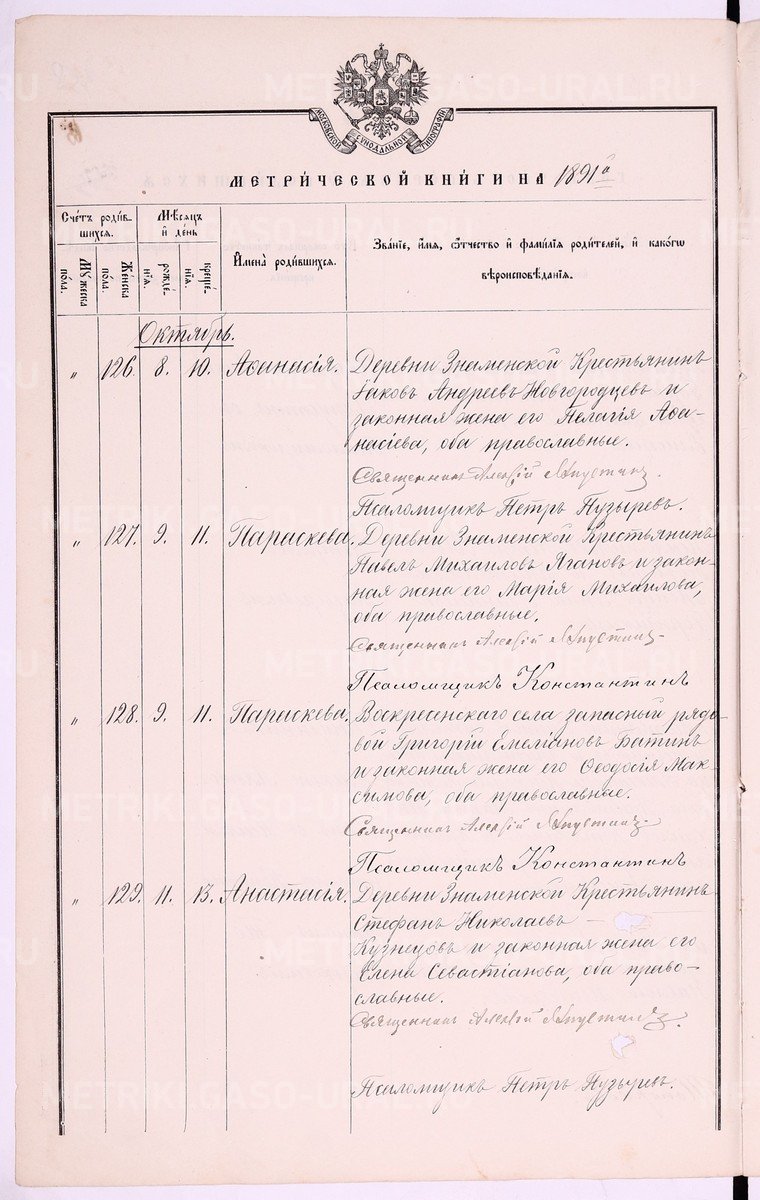 МОСКОВСКОЙ СѴНОДАЛЬНОЙ ТИПОГРАФІИ
МЕТРИ́ЧЕСКОЙ КНИ́ГИ НА 1891 г.
Сче́тъ роди́вшихся.
Му́жеска по́ла.
Же́нска по́ла.
Мѣ́сяцъ и де́нь
рожде́нїя.
креще́нїя.
И҆мена̀ роди́вшихся.
Зва́нїе, и҆́мя, ѻ҆́тчество и҆ фами́лїя роди́телей, и҆ како́гѡ
вѣроисповѣ́данїя.
Октябрь.
„ 126. 8. 10. Аѳанасія. Деревни Знаменской Крестьянинъ
Іаковъ Андреевъ Новгородцевъ и
законная жена его Пелагія Аѳа-
насіева, оба православные.
Священникъ Алексій
Псаломщикъ Петръ Пузыревъ.
„ 127. 9. 11. Параскева. Деревни Знаменской Крестьянинъ
Павелъ Михаиловъ Ягановъ и закон-
ная жена его Марія Михаилова,
оба православные.
Священникъ Алексій
Псаломщикъ Константинъ
„ 128. 9. 11. Параскева. Воскресенскаго села запасный рядо-
вой Григорій Емеліановъ Батинъ
и законная жена его Ѳеодосія Мак-
симова, оба православные.
Священникъ Алексій
Псаломщикъ Константинъ
„ 129. 11. 13. Анастасія. Деревни Знаменской Крестьянинъ
Стефанъ Николаевъ —
Кузнецовъ и законная жена его
Елена Севастіанова, оба право-
славные.
Священникъ Алексій
Псаломщикъ Петръ Пузыревъ.